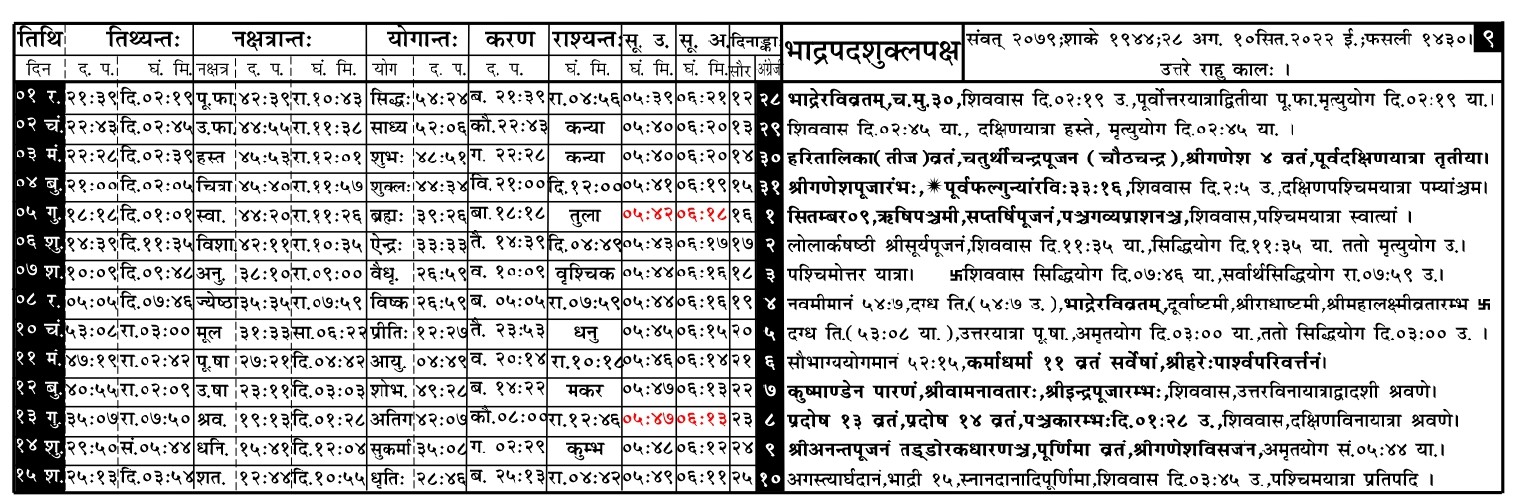 तिथि तिथ्यन्तः नक्षत्रान्तः योगान्तः करण राश्यन्तः सू. उ. सू. अ. दिनाङ्काः भाद्रपदशुक्लपक्ष संवत् २०७९;शाके १९४४;२८ अग. १०सित.२०२२ ई.;फसली १४३०। ९
दिन द. प. घं. मि. नक्षत्र द. प. घं. मि. योग द. प. द. प. घं. मि. घं. मि. घं. मि. सौर अंग्रेजी उत्तरे राहु कालः ।
०१ र. २१:३९ दि.०२:१९ पू.फा ४२:३९ रा.१०:४३ सिद्धः ५४:२४ ब. २१:३९ रा.०४:५६ ०५:३९ ०६:२१ १२ २८ भाद्रेरविव्रतम्,च.मु.३०,शिववास दि.०२:१९ उ.,पूर्वोत्तरयात्राद्वितीया पू.फा.मृत्युयोग दि.०२:१९ या.।
०२ चं. २२:४३ दि.०२:४५ उ.फा ४४:५५ रा.११:३८ साध्य ५२:०६ कौ.२२:४३ कन्या ०५:४० ०६:२० १३ २९ शिववास दि.०२:४५ या., दक्षिणयात्रा हस्ते, मृत्युयोग दि.०२:४५ या. ।
०३ मं. २२:२८ दि.०२:३९ हस्त ४५:५३ रा.१२:०१ शुभः ४८:५१ ग. २२:२८ कन्या ०५:४० ०६:२० १४ ३० हरितालिका(तीज)व्रतं,चतुर्थीचन्द्रपूजन (चौठचन्द्र),श्रीगणेश ४ व्रतं,पूर्वदक्षिणयात्रा तृतीया।
०४ बु. २१:०० दि.०२:०५ चित्रा ४५:४० रा.११:५७ शुक्लः ४४:३४ वि.२१:०० दि.१२:०० ०५:४१ ०६:१९ १५ ३१ श्रीगणेशपूजारंभः,✴पूर्वफल्गुन्यांरविः३३:१६,शिववास दि.२:५ उ.,दक्षिणपश्चिमयात्रा पम्याञ्चम।
०५ गु. १८:१८ दि.०१:०१ स्वा. ४४:२० रा.११:२६ ब्रह्मः ३९:२६ बा.१८:१८ तुला ०५:४२ ०६:१८ १६ १ सितम्बर०९,ऋषिपञ्चमी,सप्तर्षिपूजनं,पञ्चगव्यप्राशनञ्च,शिववास,पश्चिमयात्रा स्वात्यां ।
०६ शु. १४:३९ दि.११:३५ विशा ४२:११ रा.१०:३५ ऐन्द्रः ३३:३३ तै. १४:३९ दि.०४:४९ ०५:४३ ०६:१७ १७ २ लोलार्कषष्ठी श्रीसूर्यपूजनं,शिववास दि.११:३५ या.,सिद्धियोग दि.११:३५ या. ततो मृत्युयोग उ.।
०७ श. १०:०९ दि.०९:४८ अनु. ३८:१० रा.०९:०० वैधृ. २६:५९ व. १०:०९ वृश्चिक ०५:४४ ०६:१६ १८ ३ पश्चिमोत्तर यात्रा। 卐शिववास सिद्धियोग दि.०७:४६ या.,सर्वार्थसिद्धियोग रा.०७:५९ उ.।
०८ र. ०५:०५ दि.०७:४६ ज्येष्ठा ३५:३५ रा.०७:५९ विष्क २६:५९ ब. ०५:०५ रा.०७:५९ ०५:४४ ०६:१६ १९ ४ नवमीमानं ५४:७,दग्ध ति.(५४:७ उ.),भाद्रेरविव्रतम्,दूर्वाष्टमी,श्रीराधाष्टमी,श्रीमहालक्ष्मीव्रतारम्भ 卐
१० चं. ५३:०८ रा.०३:०० मूल ३१:३३ सा.०६:२२ प्रीतिः १२:२७ तै. २३:५३ धनु ०५:४५ ०६:१५ २० ५ दग्ध ति.(५३:०८ या.),उत्तरयात्रा पू.षा,अमृतयोग दि.०३:०० या.,ततो सिद्धियोग दि.०३:०० उ. ।
११ मं. ४७:१९ रा.०२:४२ पू.षा २७:२१ दि.०४:४२ आयु. ०४:४९ व. २०:१४ रा.१०:१८ ०५:४६ ०६:१४ २१ ६ सौभाग्ययोगमानं ५२:१५,कर्माधर्मा ११ व्रतं सर्वेषां,श्रीहरेःपार्श्वपरिवर्त्तनं।
१२ बु. ४०:५५ रा.०२:०९ उ.षा २३:११ दि.०३:०३ शोभ. ४९:२८ ब. १४:२२ मकर ०५:४७ ०६:१३ २२ ७ कुष्माण्डेन पारणं,श्रीवामनावतारः,श्रीइन्द्रपूजारम्भः,शिववास,उत्तरविनायात्राद्वादशी श्रवणे।
१३ गु. ३५:०७ रा.०७:५० श्रव. १९:१३ दि.०१:२८ अतिग ४२:०७ कौ.०८:०० रा.१२:४६ ०५:४७ ०६:१३ २३ ८ प्रदोष १३ व्रतं,प्रदोष १४ व्रतं,पञ्चकारम्भःदि.०१:२८ उ.,शिववास,दक्षिणविनायात्रा श्रवणे।
१४ शु. २९:५० सं.०५:४४ धनि. १५:४१ दि.१२:०४ सुकर्मा ३५:०८ ग. ०२:२९ कुम्भ ०५:४८ ०६:१२ २४ ९ श्रीअनन्तपूजनं तड्डोरकधारणञ्च,पूर्णिमा व्रतं,श्रीगणेशविसजन,अमृतयोग सं.०५:४४ या.।
१५ श. २५:१३ दि.०३:५४ शत. १२:४४ दि.१०:५५ धृतिः २८:४६ ब. २५:१३ रा.०४:४२ ०५:४९ ०६:११ २५ १० अगस्त्यार्घदानं,भाद्री १५,स्नानदानादिपूर्णिमा,शिववास दि.०३:४५ उ.,पश्चिमयात्रा प्रतिपदि ।